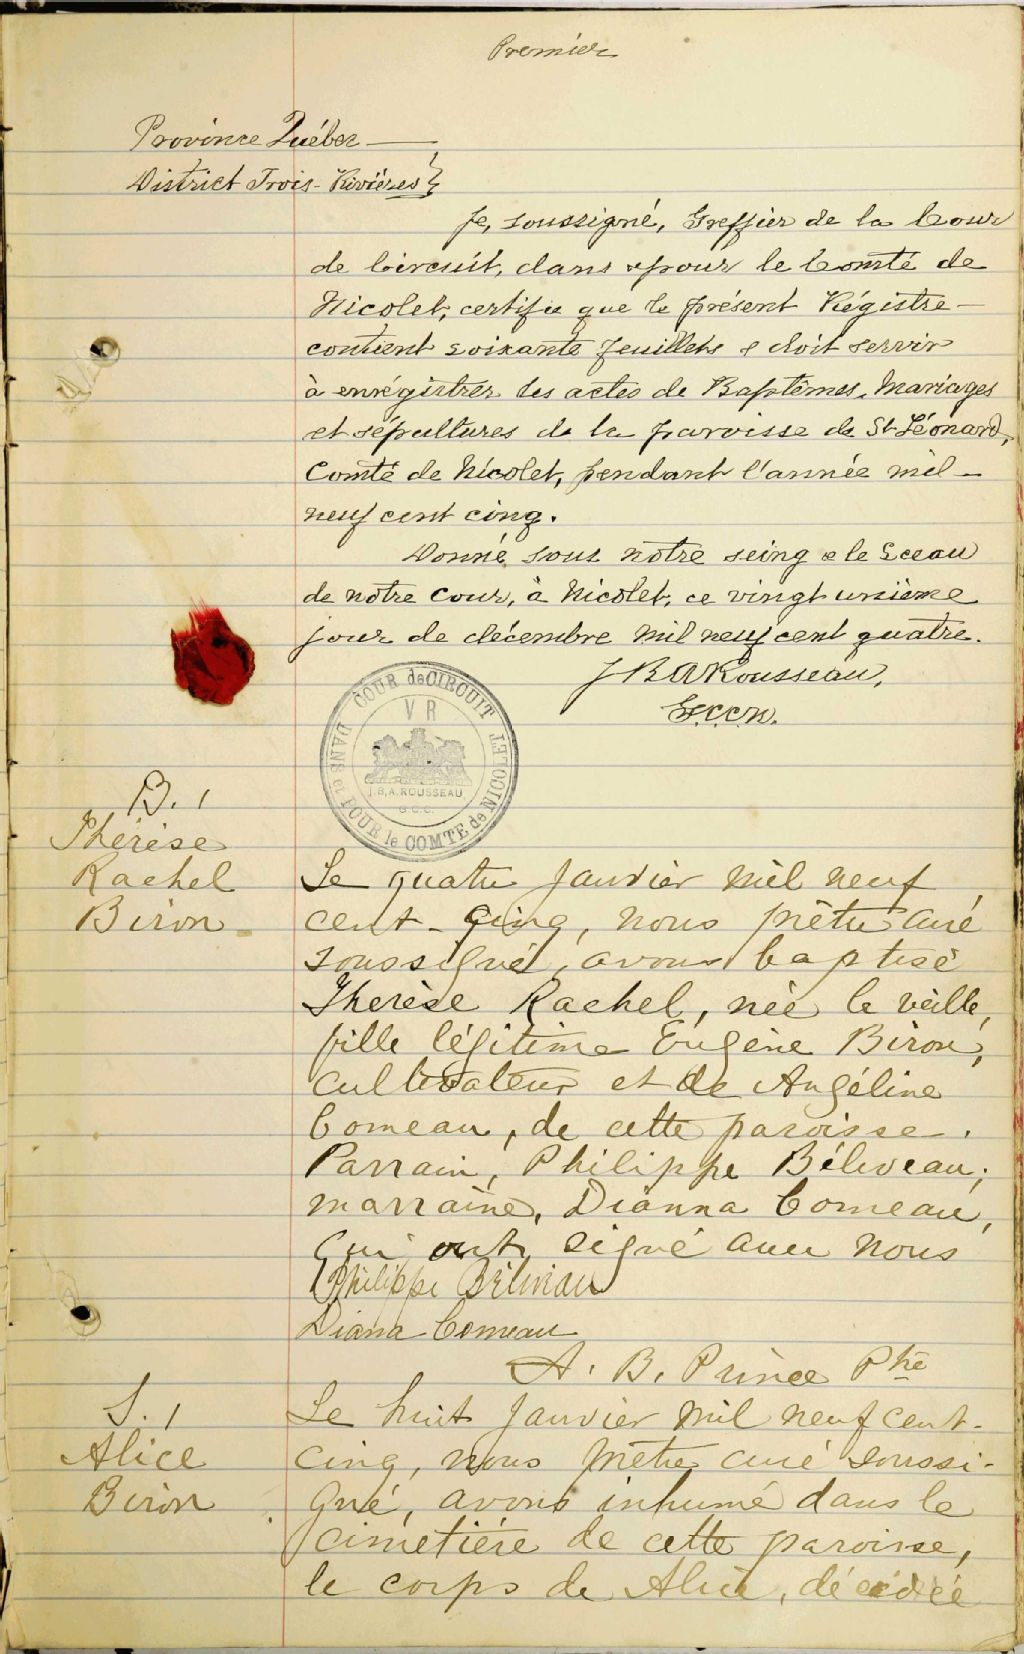 Premier
Province Québec —
District Trois-Rivières }
Je, soussigné, Greffier de la Cour
de Circuit, dans & pour le Comté de
Nicolet, certifie que le présent Régistre —
contient soixante feuillets & doit servir
à enrégistrer les actes de Baptêmes, Mariages
et sépultures de la paroisse de St Léonard,
Comté de Nicolet, pendant l'année mil —
neuf cent cinq.
Donné sous notre seing & le Sceau
de notre Cour, à Nicolet, ce vingt unième
jour de décembre mil neuf cent quatre.
J B A Rousseau,
G.C.C.N.
COUR de CIRCUIT
DANS et POUR le COMTE de NICOLET
V R
J.B.A. ROUSSEAU
G.C.C.
B. 1
Thérèse
Rachel
Biron
Le quatre Janvier mil neuf
cent-cinq, nous prêtre curé
soussigné, avons baptisé
Therèse Rachel, née la veille,
fille légitime Eugène Biron,
cultivateur et de Angéline
Comeau, de cette paroisse.
Parrain, Philippe Béliveau;
marraine, Dianna Comeau,
qui ont signé avec nous
Philippe Béliveau
Diana Comeau
A. B. Prince Ptre
S. 1
Alice
Biron
Le huit Janvier mil neuf cent-
cinq, nous prêtre curé soussi-
gné, avons inhumé dans le
cimetière de cette paroisse,
le corps de Alice, décédée